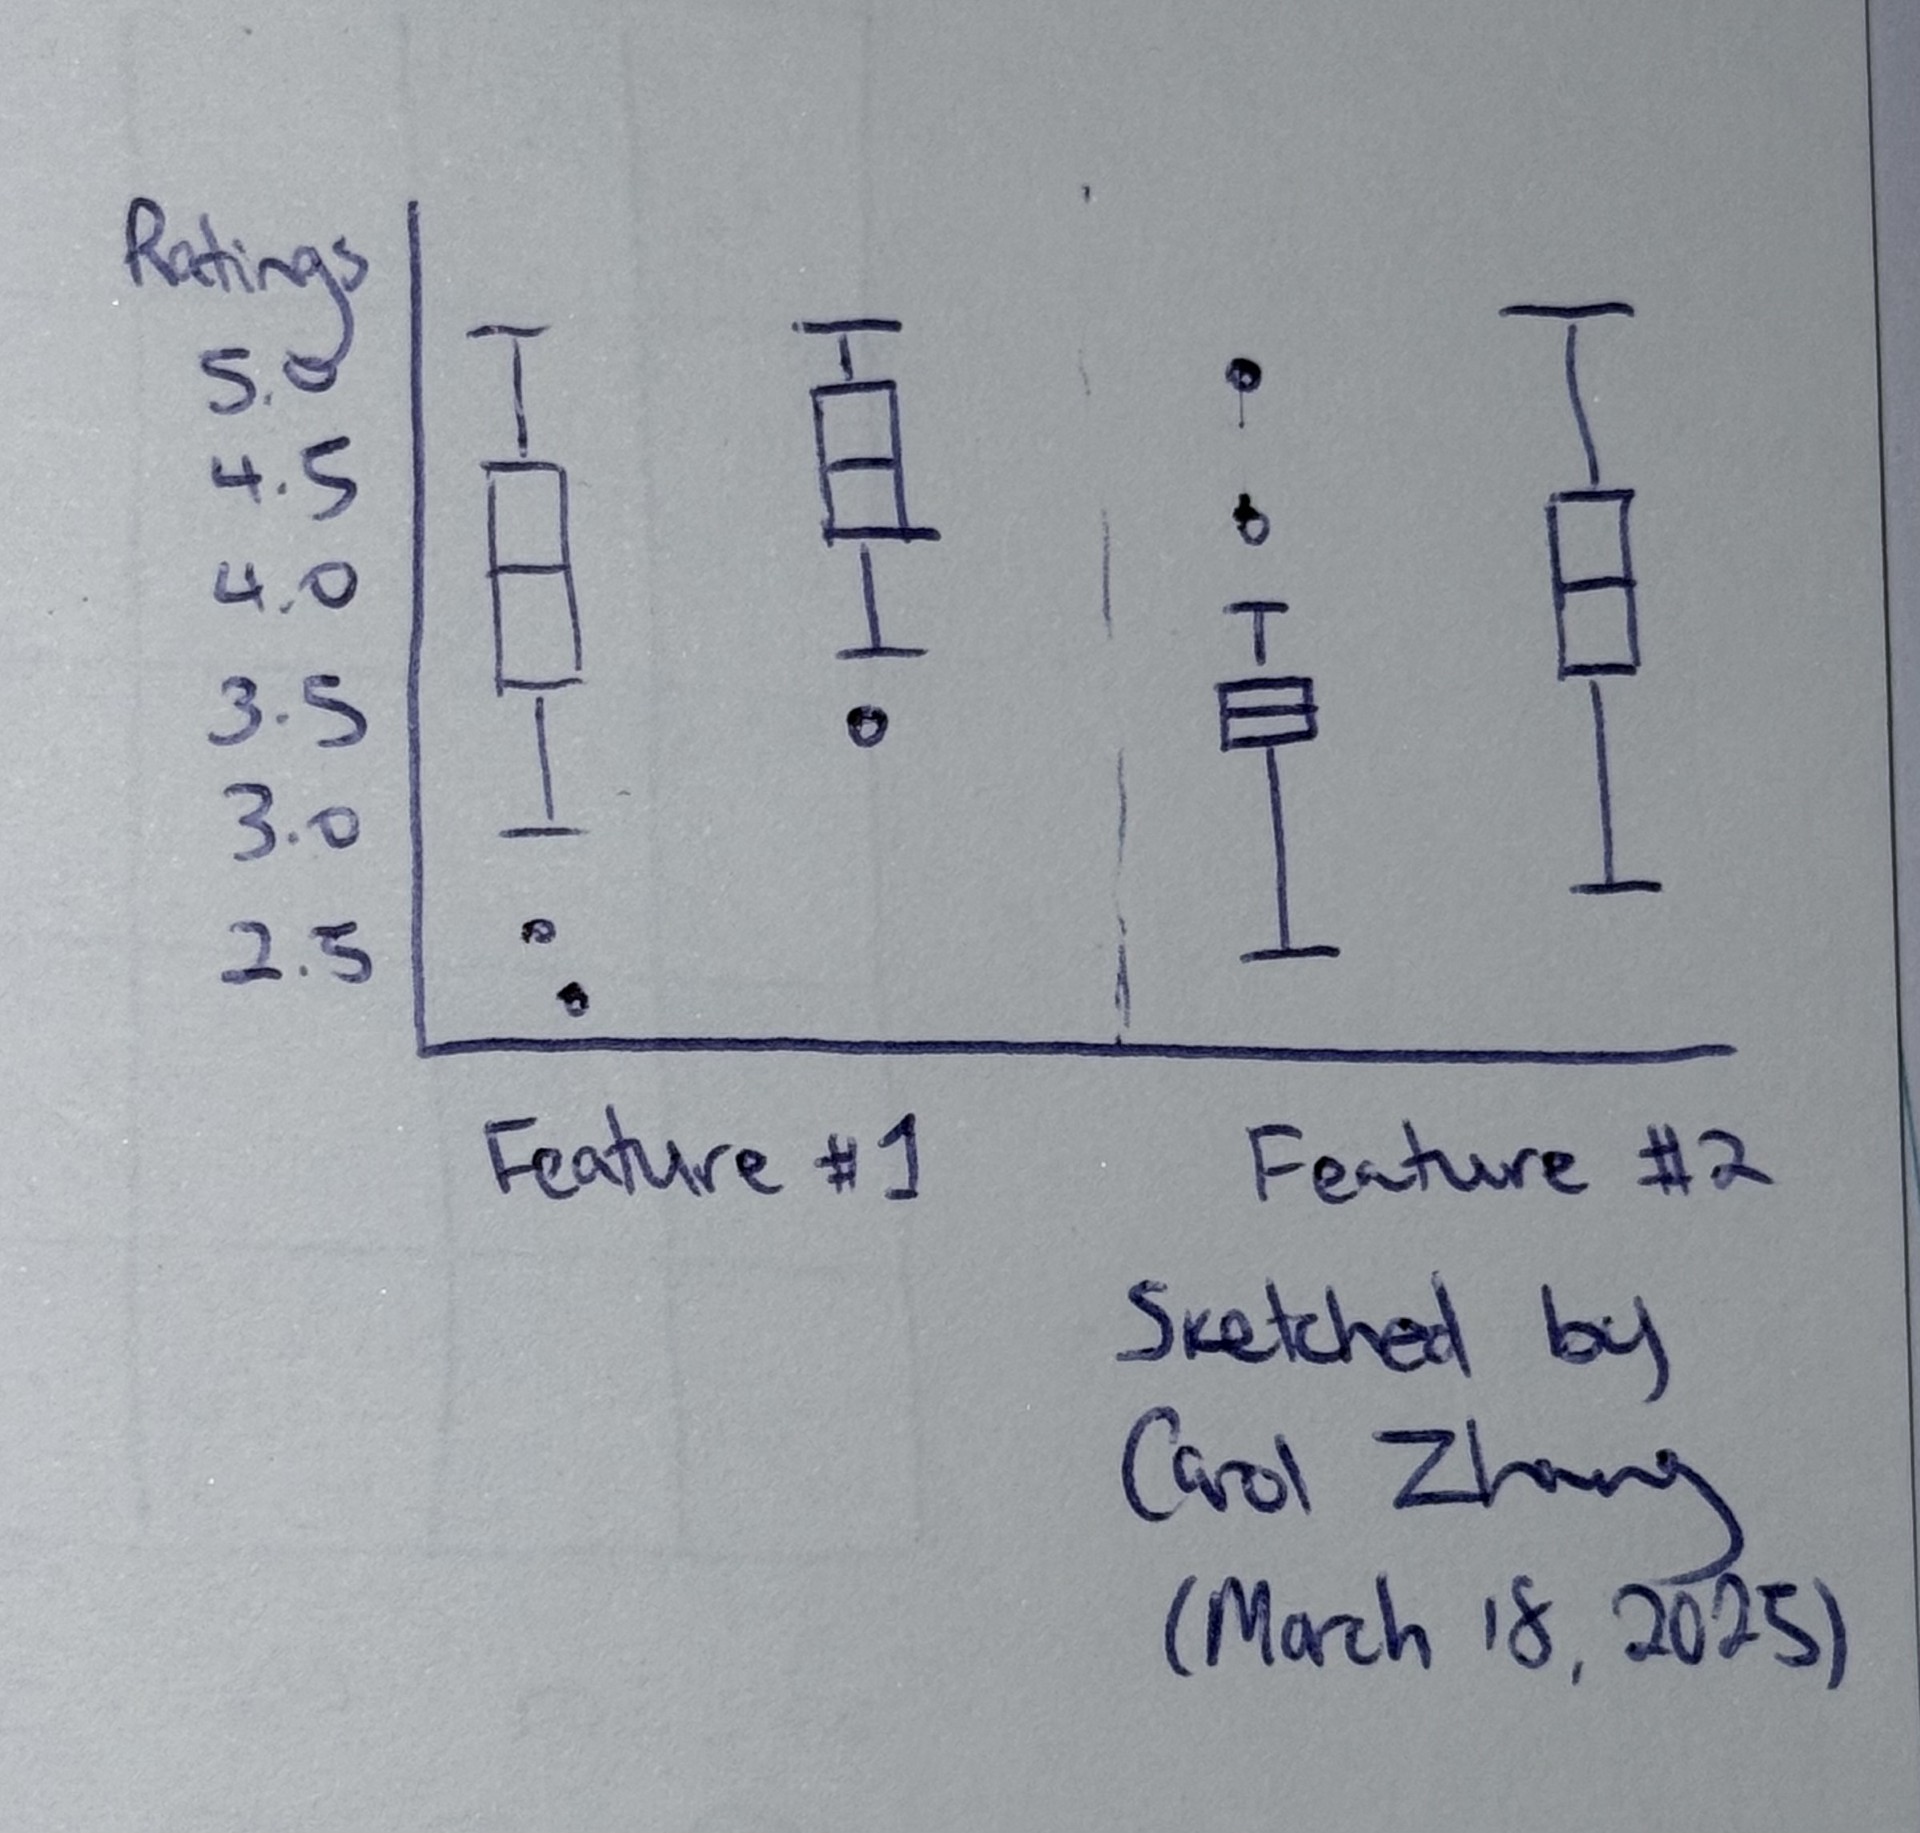 Ratings
5.0
4.5
4.0
3.5
3.0
2.5
Feature #1 Feature #2
Sketched by
Carol Zhang
(March 18, 2025)